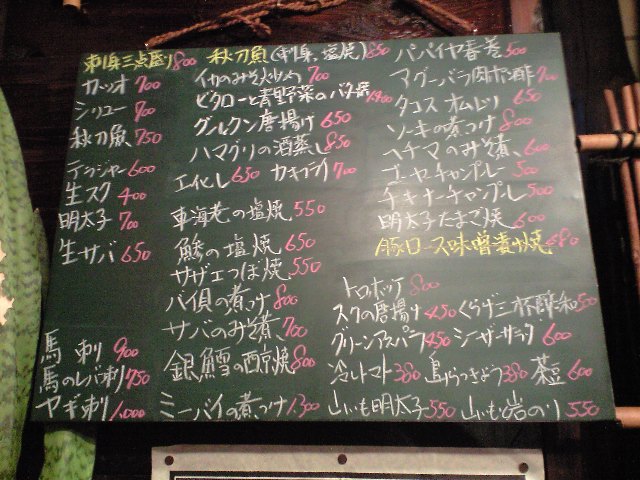 刺身三点盛り 800
カツオ 700
シリユー 700
秋刀魚 750
テラジャー 600
生スク 400
明太子 700
生サバ 650
馬刺 900
馬のレバ刺 750
ヤギ刺 1,000
秋刀魚(刺身、塩焼) 850
イカのみそ炒め 700
ビタローと青野菜のバター 1,400
グルクン唐揚げ 650
ハマグリの酒蒸し 850
エイヒレ 650 カキフライ 700
車海老の塩焼 550
鯵の塩焼 650
サザエつぼ焼 550
バイ貝の煮つけ 800
サバのみそ煮 700
銀鱈の西京焼 800
ミーバイの煮つけ 1,300
パパイヤ春巻 500
マグーバラ肉ポン酢 700
タコスオムレツ 650
ソーキの煮つけ 800
ヘチマのみそ煮 600
ゴーヤチャンプルー 500
チキナーチャンプル 500
明太子たまご焼 600
豚ロース味噌漬け焼 680
トロホッケ 800
スクの唐揚げ 450 くらげ三杯酢和 500
グリーンアスパラ 450 シーザーサラダ 600
冷しトマト 380 島らっきょう 380 茶豆 600
山いも明太子 550 山いも岩のり 550